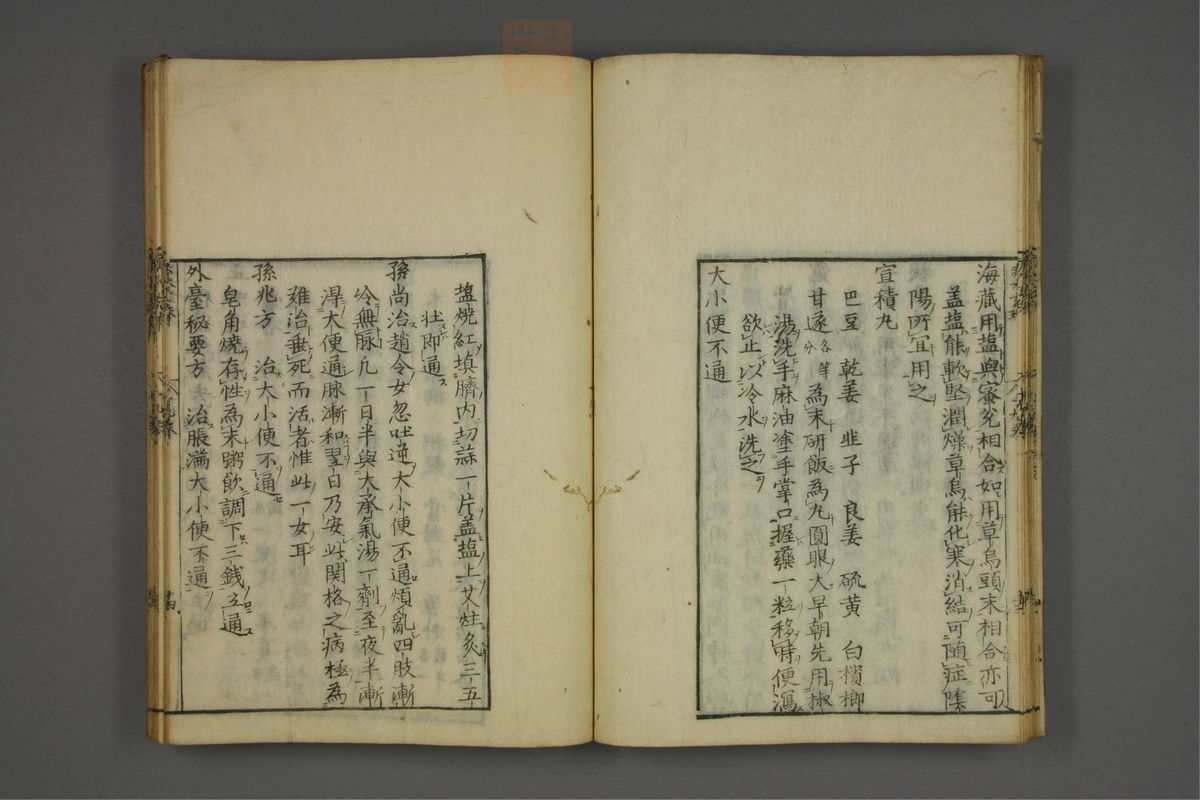 海藏用塩與蜜兌相合如用草烏頭末相合亦可
蓋塩能軟堅潤燥草烏能化寒消結可随症陰
陽所宜用之
宣積丸
巴豆 乾姜 韭子 良姜 硫黄 白檳榔
甘遂各等分為末研飯為丸圓眼大早朝先用椒
湯洗手麻油塗手掌口握藥一粒移時便瀉
欲止以冷水洗之
大小便不通
塩焼紅填臍内切蒜一片盖塩上艾炷灸三五
壮即通
孫尚治趙令女忽吐逆大小便不通煩亂四肢漸
冷無脉凡一日半與大承氣湯一劑至夜半漸
得大便通脉漸和翌日乃安此関格之病極為
難治垂死而活者惟此一女耳
孫兆方 治大小便不通
皂角焼存性為末粥飲調下三銭立通
外臺秘要方 治脹満大小便不通